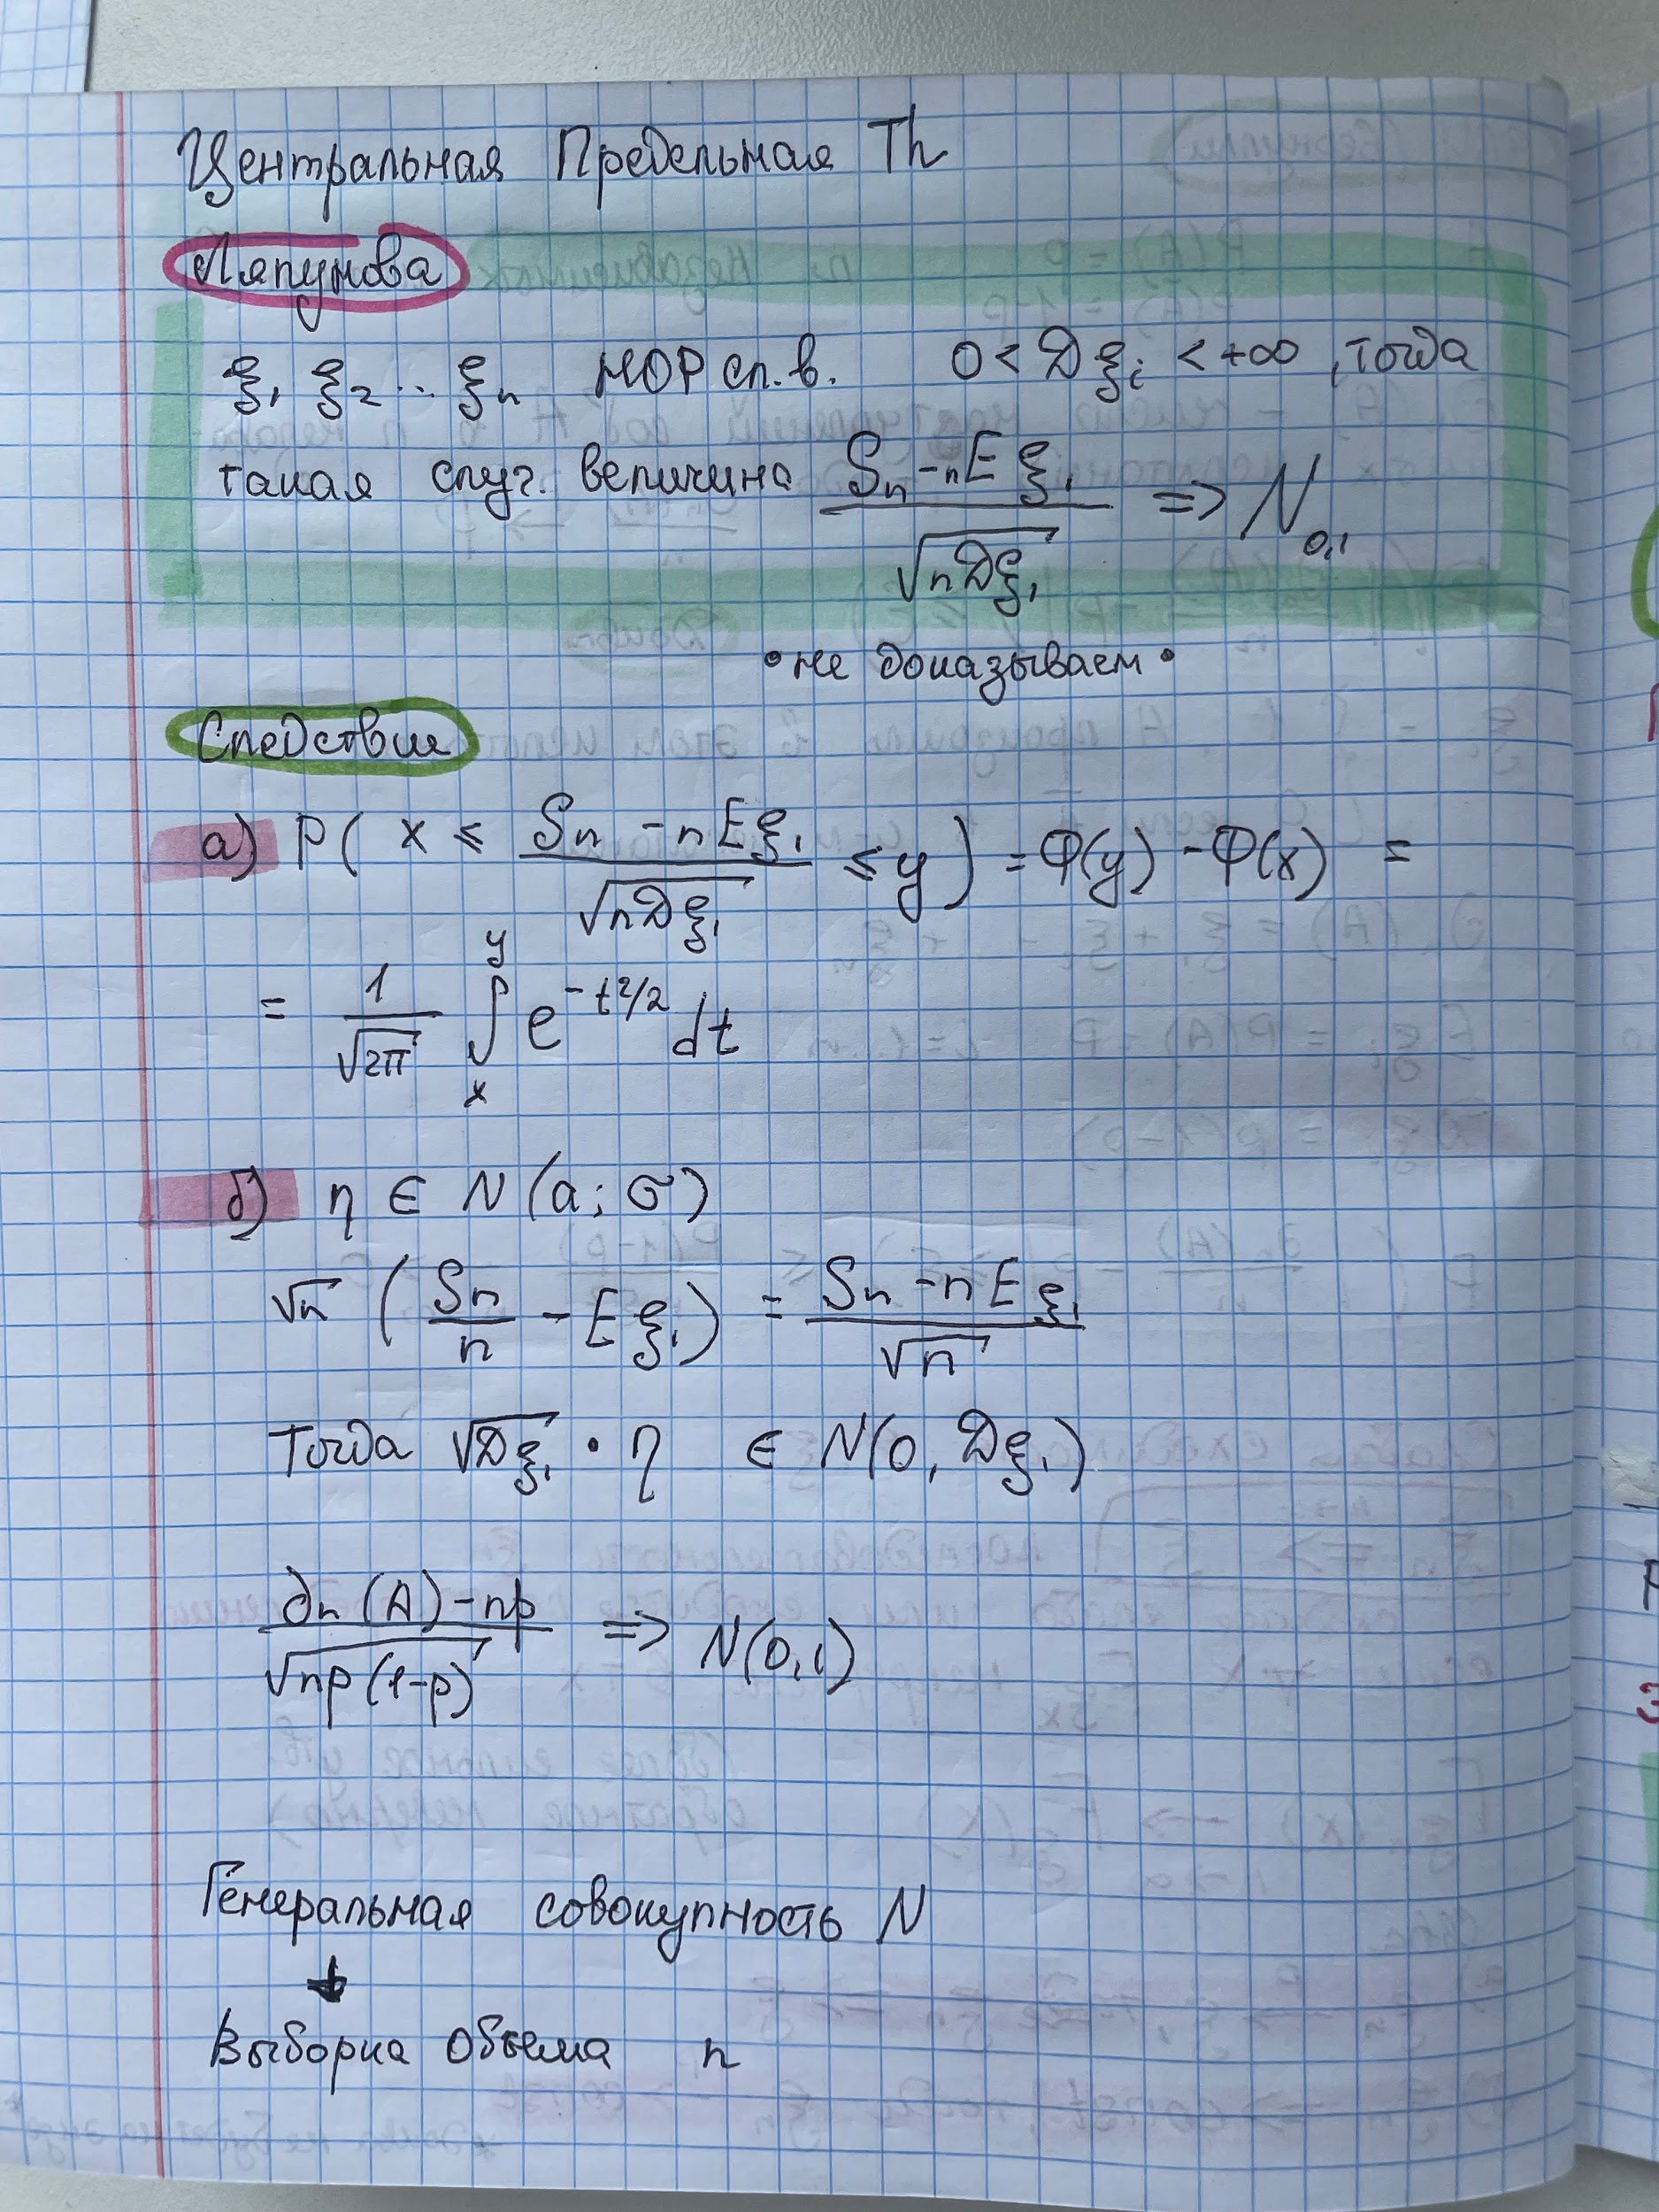 Центральная Предельная Th
Ляпунова
ξ₁ ξ₂ ... ξₙ НОР сл. в. 0 < Dξᵢ < +∞, тогда
такая случ. величина (Sₙ - nEξ₁) / √(nDξ₁) => N₀,₁
• не доказываем •
Следствие
а) P( x ≤ (Sₙ - nEξ₁) / √(nDξ₁) ≤ y ) = Φ(y) - Φ(x) =
= 1/√(2π) ∫ₓʸ e^(-t²/2) dt
б) η ∈ N(a; σ)
√n (Sₙ/n - Eξ₁) = (Sₙ - nEξ₁) / √n
Тогда √(Dξ₁) • η ∈ N(0, Dξ₁)
(∂ₙ(A) - np) / √(np(1-p)) => N(0,1)
Генеральная совокупность N
↓
Выборка объема n